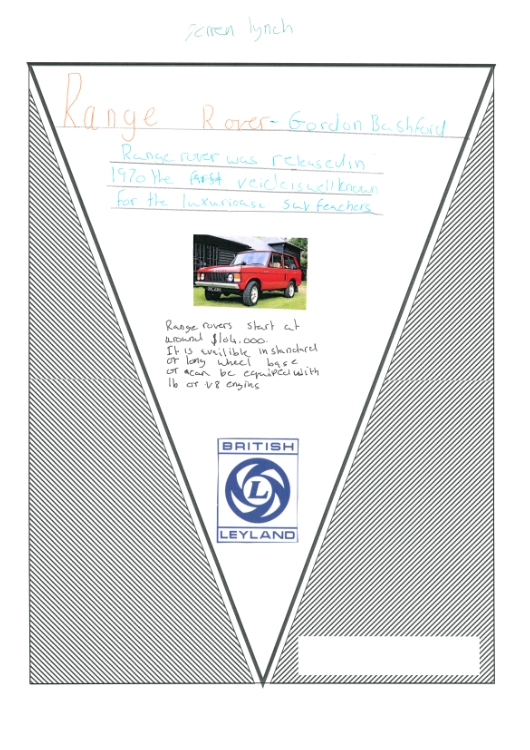 lynch
Range Rover - Gordon Bashford
Range rover was released in
1970 the first veicle is well known
for the luxurioase suv feachers
Range rovers start at
around $104,000.
It is availible in standared
or long wheel base
or can be equiped with
I6 or V8 engins
BRITISH
L
LEYLAND